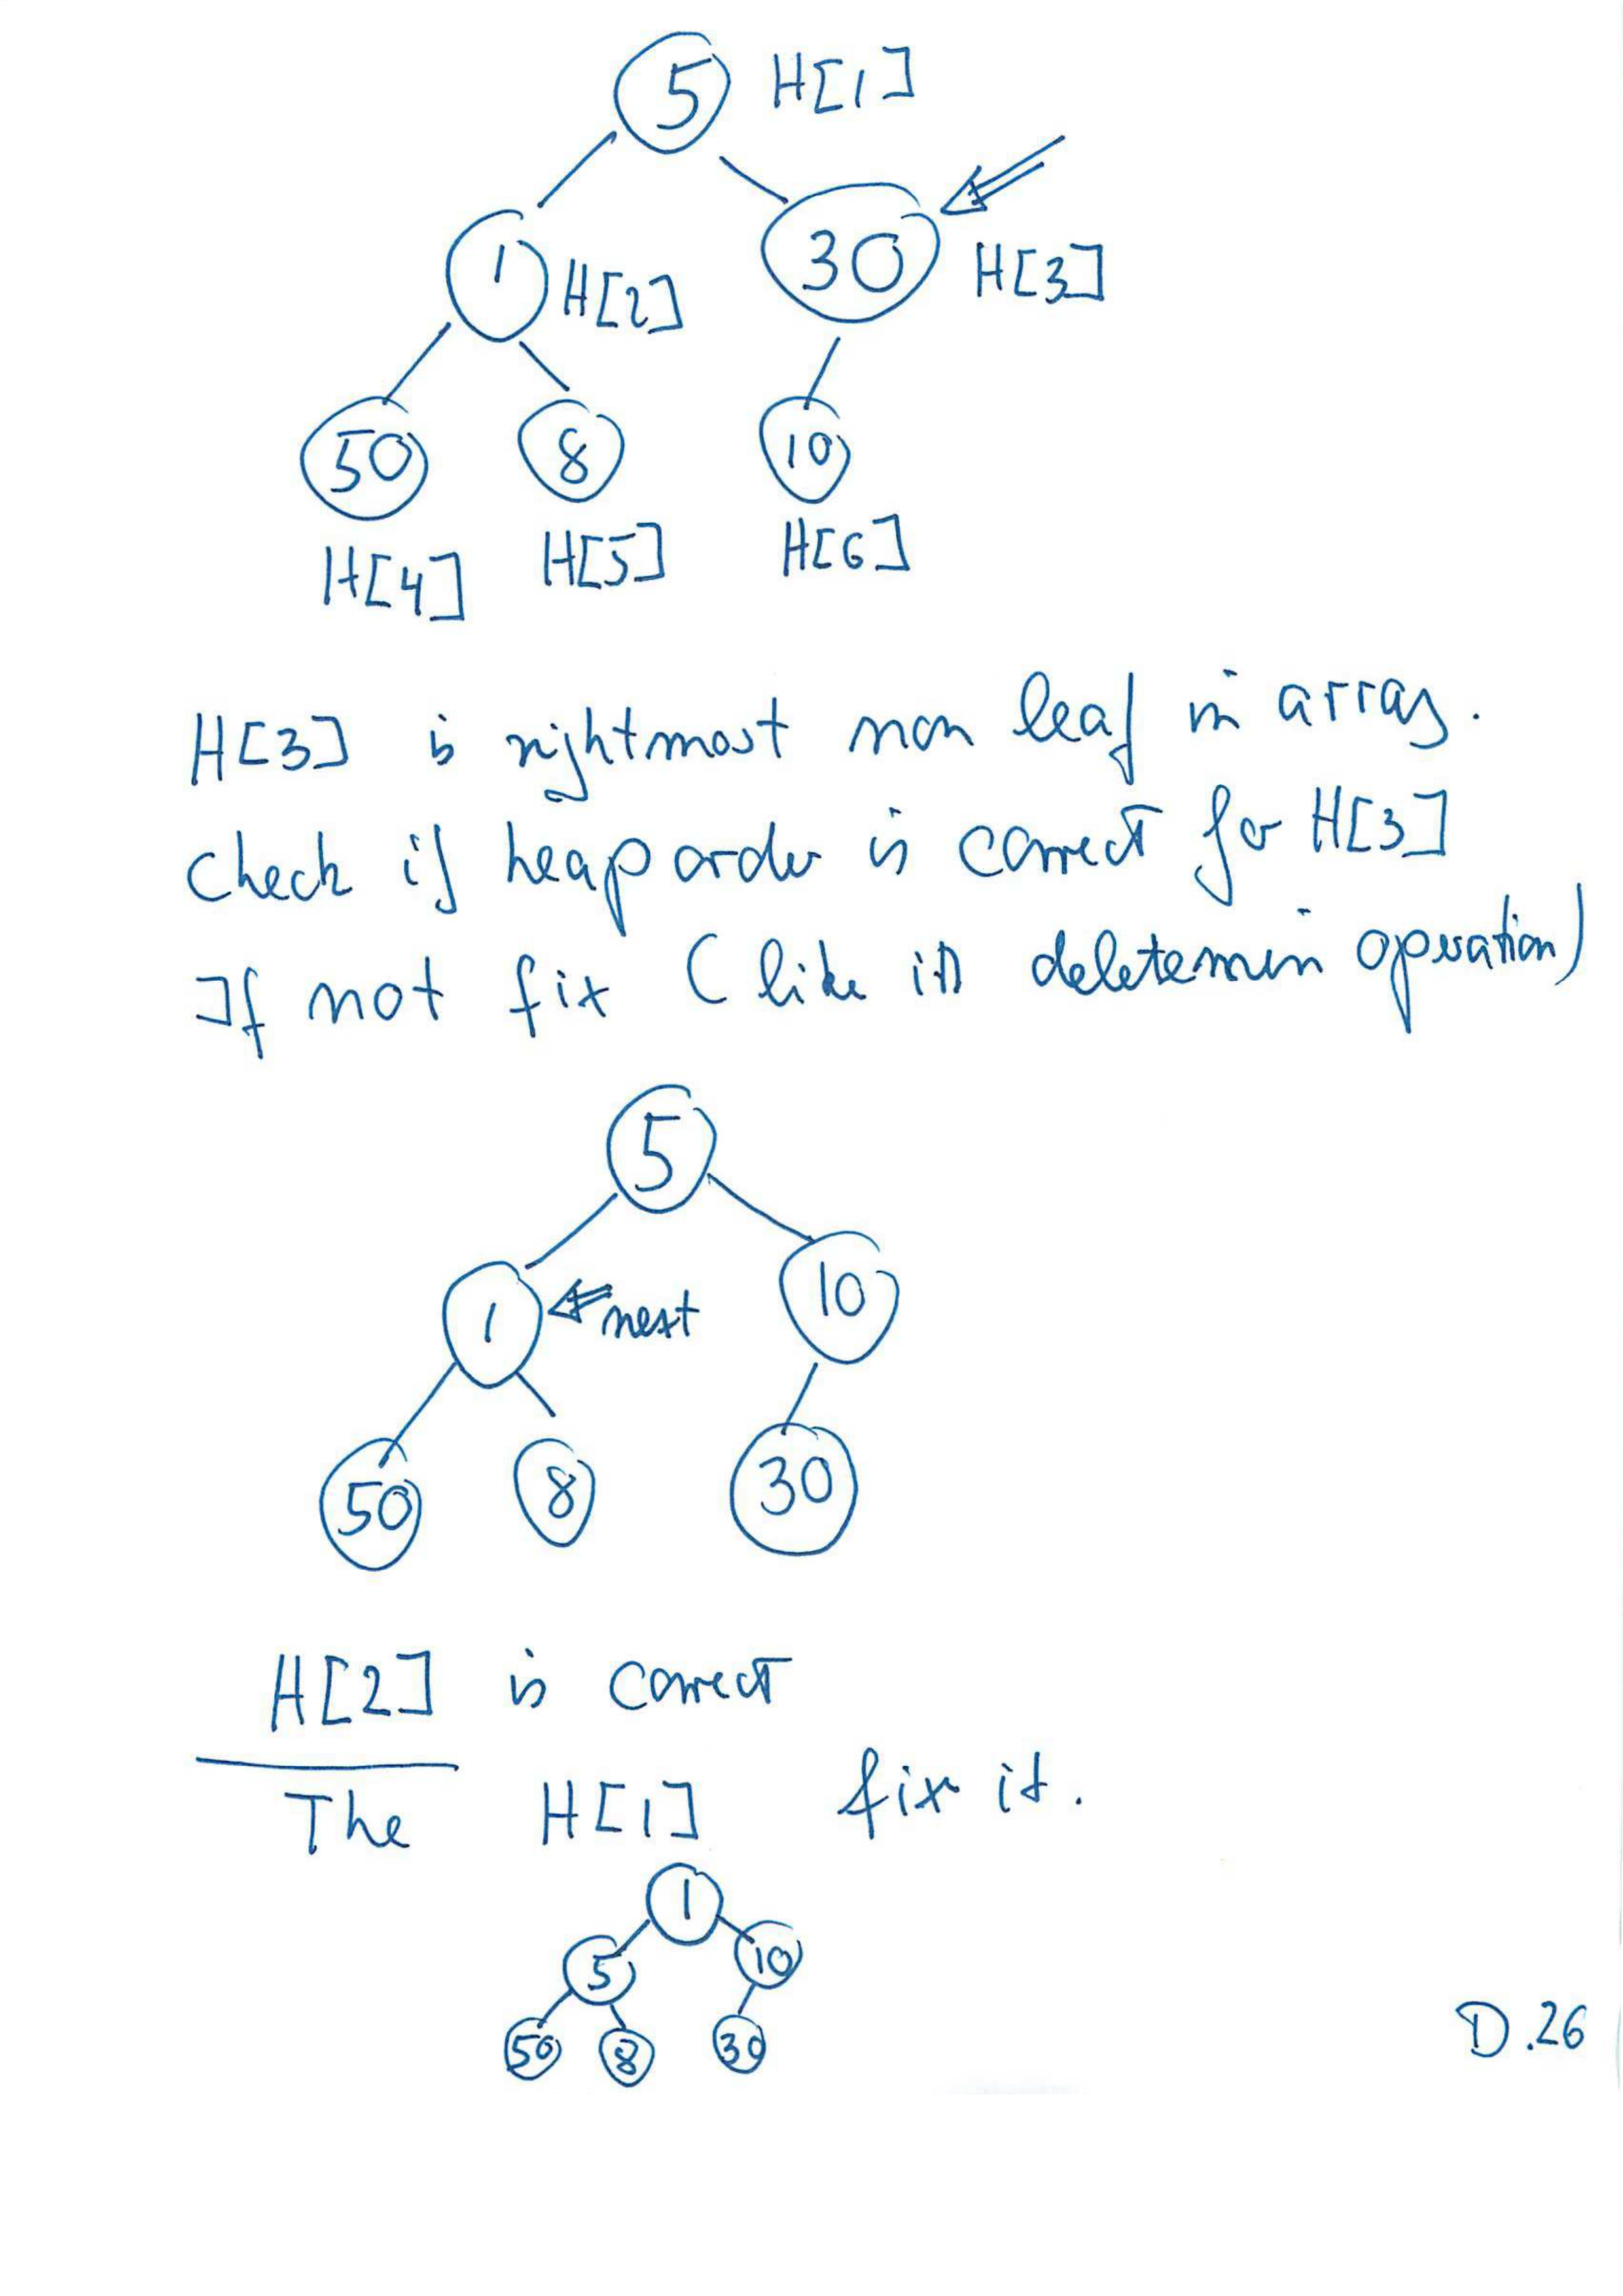 5 H[1]
1 H[2] 30 H[3]
50 8 10
H[4] H[5] H[6]
H[3] is rightmost non leaf in array.
Check if heap order is correct for H[3]
If not fix (like in deletemin operation)
5
1 next 10
50 8 30
H[2] is correct
The H[1] fix it.
1
5 10
50 8 30
D.26